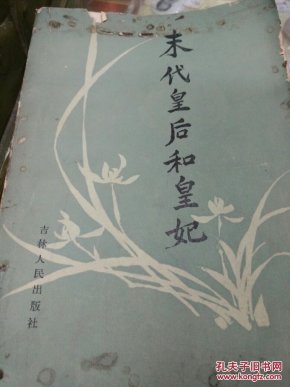 末代皇后和皇妃
吉林人民出版社
孔夫子旧书网